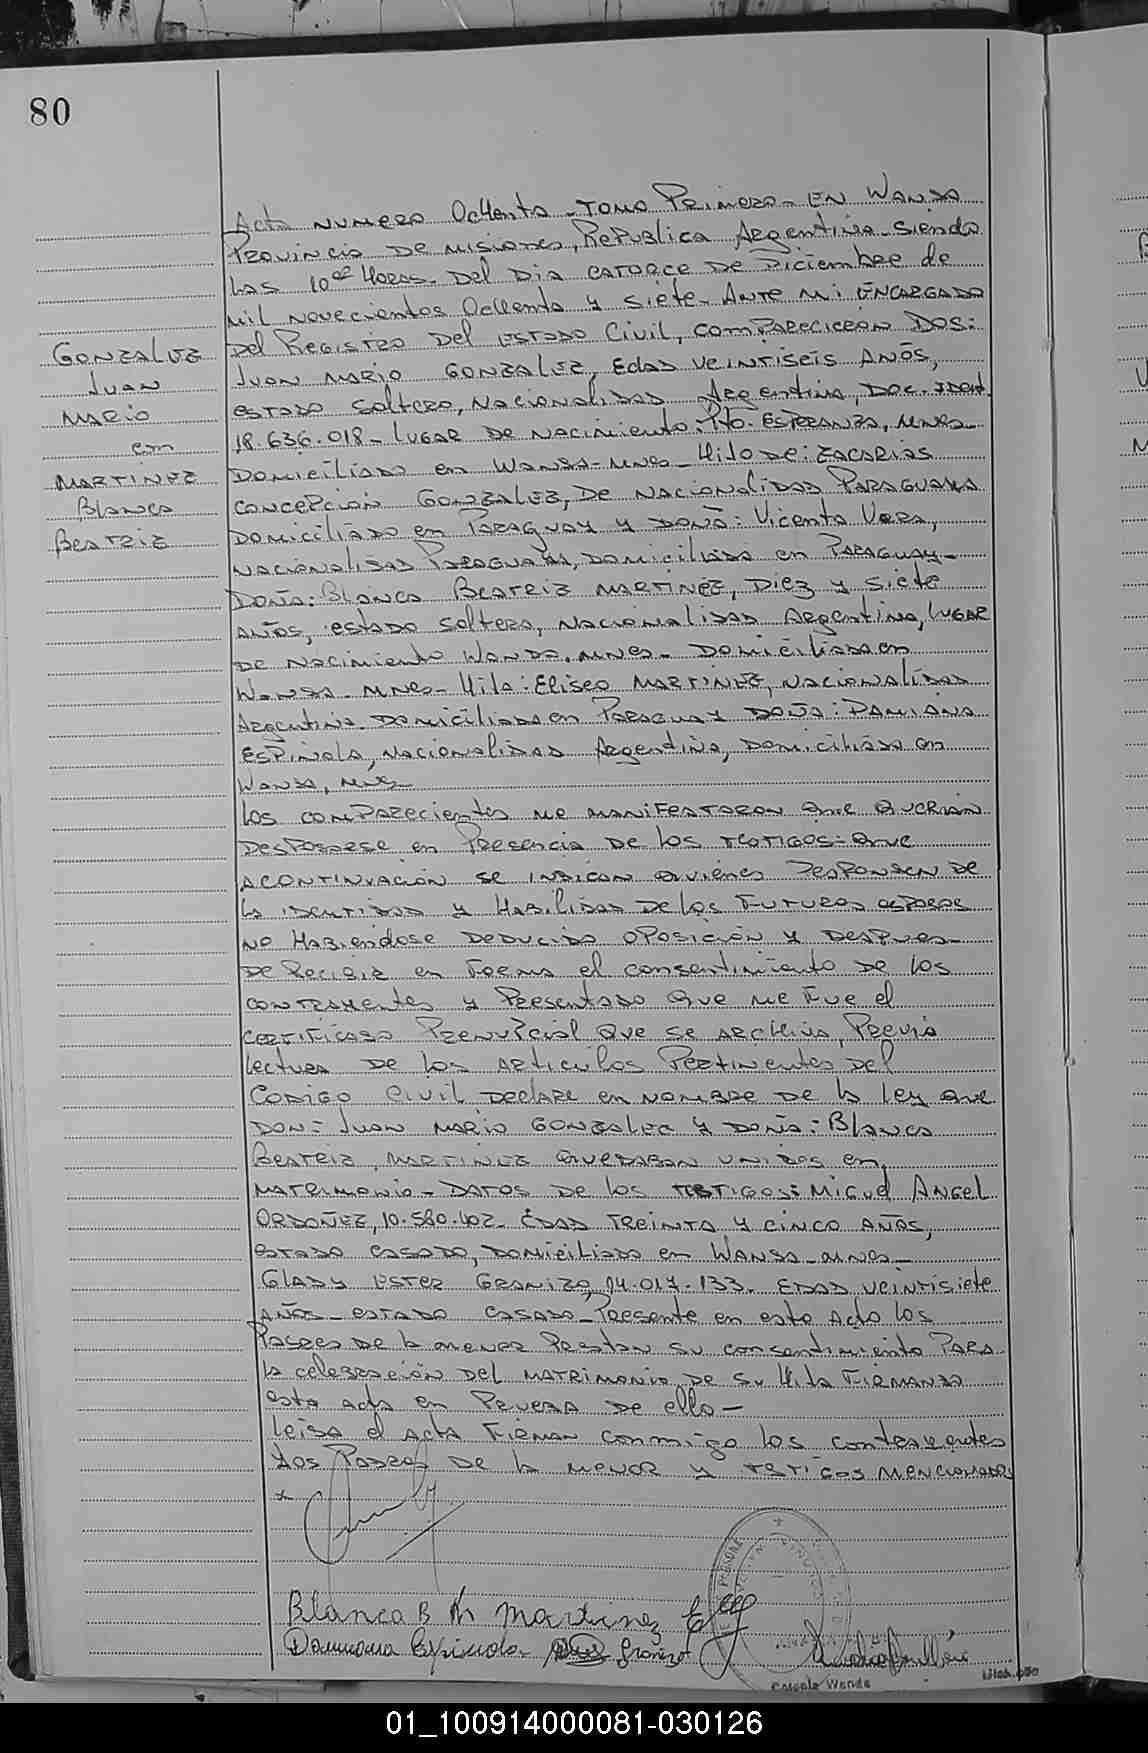 80
Acta NUMERO Ochenta - TOMO PRIMERO - EN WANDA
PROVINCIA DE MISIONES, REPUBLICA ARGENTINA - Siendo
LAS 10 HORAS. DEL DIA CATORCE DE Diciembre de
MIL Novecientos Ochenta y siete - ANTE Mi ENCARGADO
Del REGISTRO Del ESTADO Civil, COMPARECIERON DOS:
JUAN MARIO GONZALEZ, EDAD VEINTISEIS AÑOS,
ESTADO Soltero, NACIONALIDAD Argentina, Doc. Ident.
18.636.018 - LUGAR DE NACIMIENTO: Pto. ESPERANZA, MNES -
DOMICILIADO en WANDA - MNES - HIJO DE: ZACARIAS
CONCEPCION GONZALEZ, DE NACIONALIDAD PARAGUAYA
DOMICILIADO en PARAGUAY Y DOÑA: Vicenta Vera,
NACIONALIDAD PARAGUAYA, DOMICILIADA en PARAGUAY -
DOÑA: BLANCA BEATRIZ MARTINEZ, DIEZ y Siete
AÑOS, ESTADO Soltera, NACIONALIDAD Argentina, LUGAR
DE NACIMIENTO WANDA, MNES - DOMICILIADA en
WANDA - MNES - HIJA: ELISEO MARTINEZ, NACIONALIDAD
Argentina DOMICILIADO en PARAGUAY DOÑA: DAMIANA
ESPINOLA, NACIONALIDAD Argentina, DOMICILIADA en
WANDA, MNES
GONZALEZ
JUAN
MARIO
con
MARTINEZ
BLANCA
BEATRIZ
LOS COMPARECIENTES ME MANIFESTARON QUE QUERIAN
DESPOSARSE en PRESENCIA DE LOS TESTIGOS: QUE
ACONTINUACION SE INDICAN QUIENES RESPONDEN DE
LA IDENTIDAD Y HABILIDAD DE LOS FUTUROS ESPOSOS
NO HABIENDOSE DEDUCIDO OPOSICION Y DESPUES -
DE RECIBIR en FORMA el consentimiento DE LOS
CONTRAYENTES y PRESENTADO QUE ME FUE el
CERTIFICADO PRENUPCIAL QUE SE ARCHIVA, PREVIA
lectura DE los ARTICULOS PERTINENTES Del
CODIGO CIVIL DECLARE en NOMBRE DE LA Ley QUE
DON: JUAN MARIO GONZALEZ Y DOÑA: BLANCA
BEATRIZ, MARTINEZ QUEDABAN UNIDOS en
MATRIMONIO - DATOS DE los TESTIGOS: MIGUEL ANGEL
ORDOÑEZ, 10.580.402 - EDAD TREINTA Y CINCO AÑOS,
ESTADO CASADO, DOMICILIADO en WANDA - MNES -
GLADY ESTER GRANIZO, 14.017.133. EDAD VEINTISIETE
AÑOS - ESTADO CASADO - Presente en este Acto los
PADRES DE la menor PRESTAN SU consentimiento PARA
la celebración DEL MATRIMONIO DE SU HIJA FIRMANDO
esta acta en PRUEBA DE ello -
Leida el Acta FIRMAN conmigo los contrayentes
los PADRES DE la MENOR Y TESTIGOS MENCIONADOS
Blanca B M Martinez
Damiana Espinola Granizo
01_100914000081-030126